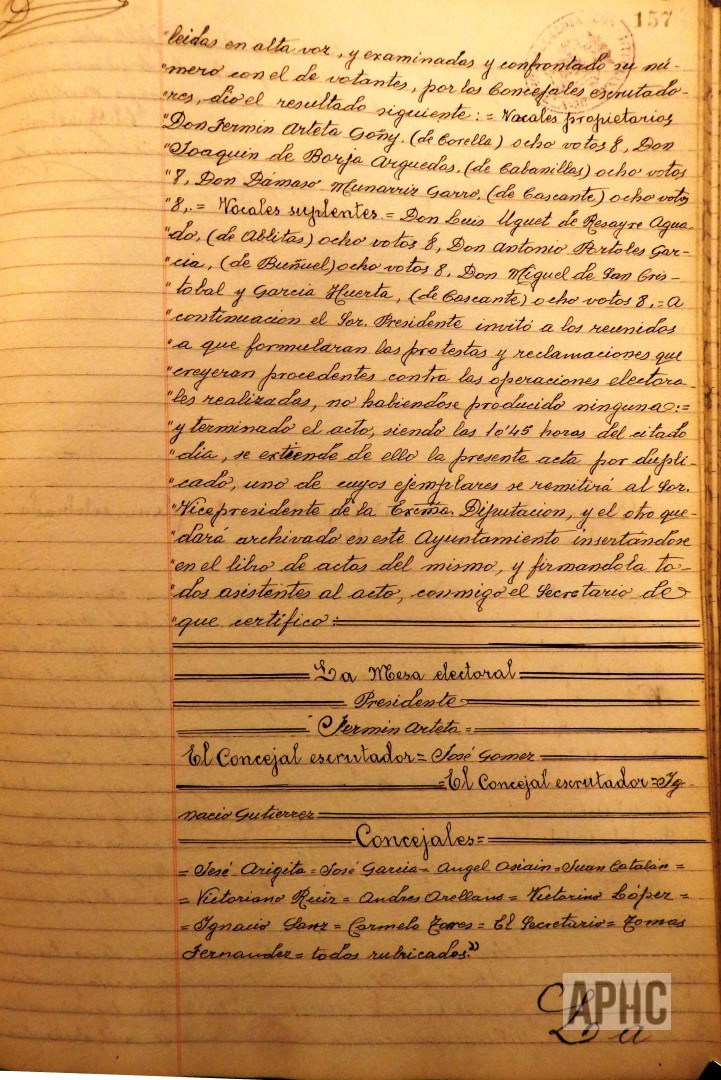 157
"leidas en alta voz, y examinadas y confrontado su nú-
"mero con el de votantes, por los Concejales escrutado-
"res, dio el resultado siguiente: = Vocales propietarios
"Don Fermin Arteta Goñy. (de Corella) ocho votos 8, Don
"Joaquin de Borja Arguedas. (de Cabanillas) ocho votos
"8, Don Dámaso Munarriz Garro, (de Cascante) ocho votos
"8,. = Vocales suplentes = Don Luis Uguet de Resayre Agua-
"do, (de Ablitas) ocho votos 8, Don Antonio Portoles Gar-
"cia, (de Buñuel) ocho votos 8, Don Miguel de San Cris-
"tobal y Garcia Huerta, (de Cascante) ocho votos 8,. = A
"continuacion el Sor. Presidente invitó a los reunidos
"a que formularan las protestas y reclamaciones que
"creyeran procedentes contra las operaciones electora-
"les realizadas, no habiendose producido ninguna: =
"y terminado el acto, siendo las 10'45 horas del citado
"dia, se extiende de ello la presente acta por dupli-
"cado, uno de cuyos ejemplares se remitirá al Sor.
"Vicepresidente de la Excma. Diputacion, y el otro que-
"dará archivado en este Ayuntamiento insertándose
"en el libro de actas del mismo, y firmandola to-
"dos asistentes al acto, conmigo el Secretario de
"que certifico:
La Mesa electoral
Presidente
Fermin Arteta =
El Concejal escrutador = José Gomez
= El Concejal escrutador = Ig-
nacio Gutierrez
Concejales =
= José Arigita = José Garcia = Angel Osiain = Juan Catalán =
= Victoriano Ruiz = Andres Arellano = Victorino López =
= Ignacio Sanz = Carmelo Torres = El Secretario = Tomas
Fernandez = todos rubricados."
APHC
La